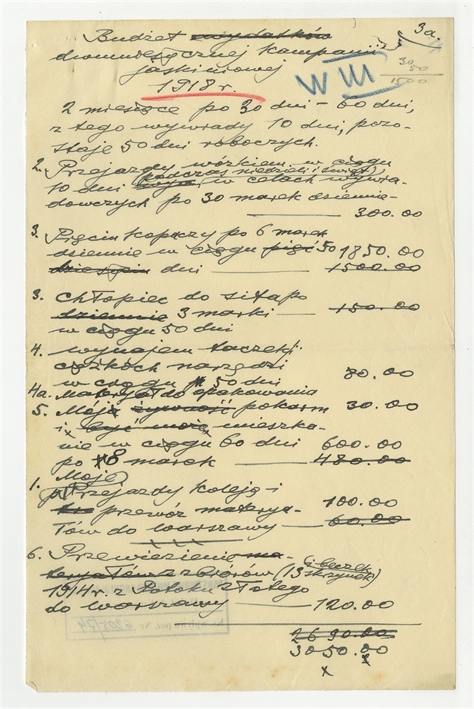 3a.
Budżet wydatków
dwumiesięcznej kampanii
jaskiniowej
1918 r.
W III
30
50
1500
2 miesiące po 30 dni – 60 dni,
z tego wywiady 10 dni, pozo-
staje 50 dni roboczych.
2. Przejazdy wózkiem w ciągu
(podczas niedziel i świąt)
10 dni w celach wywia-
dowczych po 30 marek dziennie–
300.00
3. Pięciu kopaczy po 6 marek
dziennie w ciągu pięć 50 1850.00
dziesięciu dni 1500.00
3. Chłopiec do sita po
dziennie 3 marki 150.00
w ciągu 50 dni
4. wynajem taczek i
ciężkich narzędzi
w ciągu 50 dni 80.00
4a. do opakowania
5. Mój żywność pokarm 30.00
i mieszka-
nie w ciągu 60 dni 600.00
po 8 marek 480.00
1. Moje
Przejazdy koleją i 100.00
przewóz materya-
łów do Warszawy 60.00
6. Przewiezienie ma-
teryałów z zbiorów (13 skrzynek)
1914 r. z Potoku Złotego
do Warszawy 120.00
2690.00
3050.00
x x